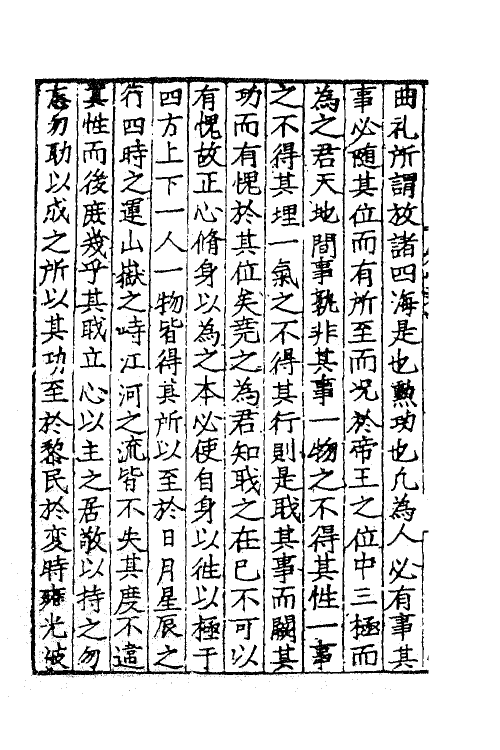 曲礼所謂放諸四海是也勲功也凡為人必有事其
事必随其位而有所至而况於帝王之位中三極而
為之君天地間事孰非其事一物之不得其性一事
之不得其理一氣之不得其行則是職其事而闕其
功而有愧於其位矣堯之為君知我之在己不可以
有愧故正心脩身以為之本必使自身以徃以極于
四方上下一人一物皆得其所以至於日月星辰之
行四時之運山嶽之峙江河之流皆不失其度不違
其性而後庶幾乎其職立心以主之居敬以持之勿
忘勿助以成之所以其功至於黎民於变時雍光被